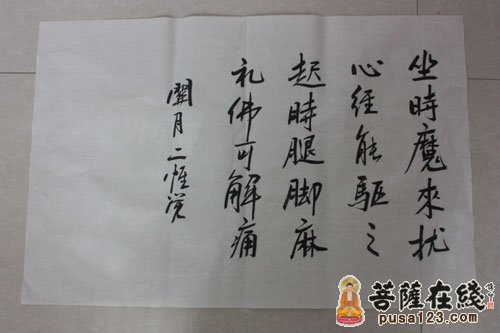 坐時魔來扰
心经能驅之
起時腿脚麻
礼佛可解痛
月二惟觉
菩薩在綫
pusa123.com